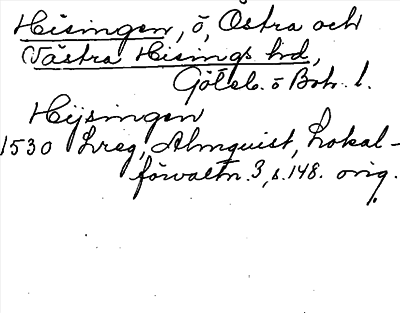 Hisingen, ö, Östra och
Västra Hisings hd,
Göteb. o Boh. l.
Hijsingen
1530 Lreg, Almquist, Lokal-
förvaltn. 3, s. 148. orig.